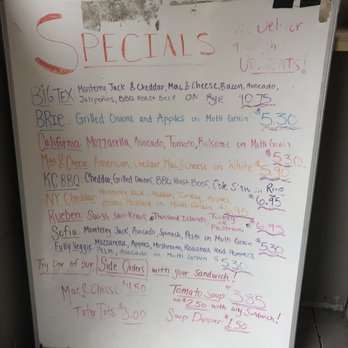 SPECIALS
We Deliver
Through
UBEREATS!
BIG TEX Monterey Jack & Cheddar, Mac & Cheese, Bacon, Avocado,
Jalapeños, BBQ Roast Beef ON Rye 10.75
BRIE: Grilled Onions and Apples on Multi Grain $5.30
California: Mozzarella, Avocado, Tomato, Balsamic on Multi Grain $5.30
Mac & Cheese: American, Cheddar, Mac & Cheese on White $5.90
KC BBQ: Cheddar, Grilled Onions, BBQ Roast Beef, on $6.95
NY Cheddar Monterey Jack, Cheddar, Turkey, Apples,
Honey Mustard on Multi Grain $6.95
Rueben: Swiss, Sauerkraut, Thousand Islands, Turkey $6.95
Pastrami
Sofia: Monterey Jack, Avocado, Spinach, Pesto on Multi Grain $5.30
Fully Veggie Mozzarella, Apples, Mushroom, Roasted Red Peppers,
Pesto, Avocado on Multi Grain $5.30
Try One of our Side Orders with your Sandwich!
Mac & Cheese $4.50
Tater Tots $3.00
Tomato Soup $3.85
or $2.50 with any Sandwich!
Soup Dipper $1.50